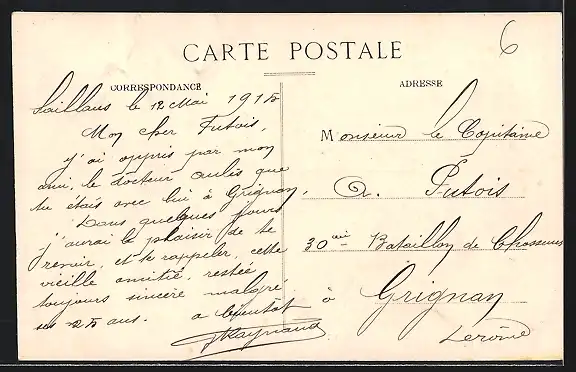 6
CARTE POSTALE
CORRESPONDANCE
Saillans le 12 Mai 1915
Mon cher Putois,
j'ai appris par mon
ami, le docteur aulis que
tu étais avec lui à Grignan.
Dans quelques jours
j'aurai le plaisir de te
revoir, et te rappeler, cette
vieille amitié, restée
toujours sincère malgré
ses 25 ans. a bientôt
Raynaud
ADRESSE
Monsieur le Capitaine
A. Putois
30 Bataillon de Chasseurs
à Grignan